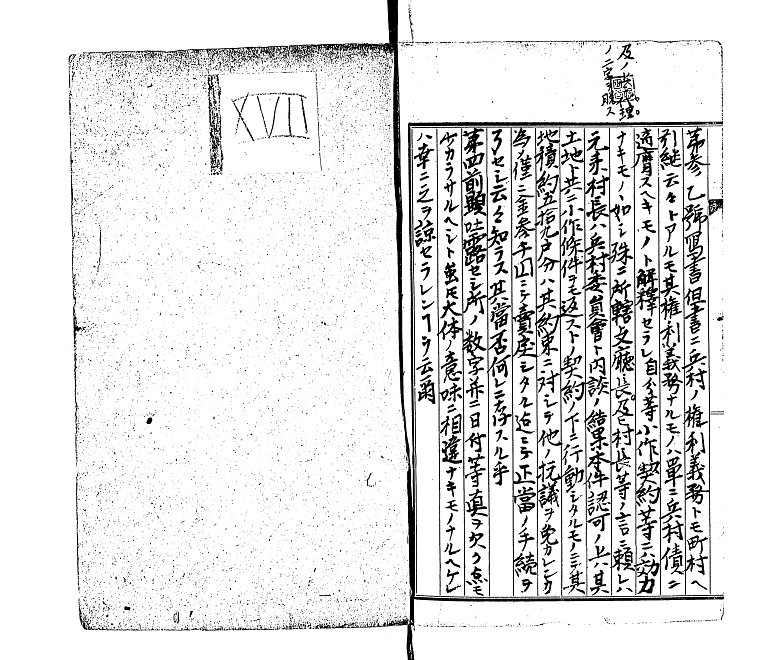 及ノ共地理
ノ二字ヲ脱ス
第参乙號寫書但書ニ兵村ノ權利義務トモ町村ヘ
引継云々トアルモ其權利義務ナルモノハ單ニ兵村債ニ
適應スヘキモノト解釋セラレ自分等小作契約等ニハ効力
ナキモノヽ如シ殊ニ所轄支廳長及已村長等ノ言ニ頼レハ
元来村長ハ兵村委員會ト内談ノ結果本件認可ノ上ハ其
土地ト共ニ小作條件ヲモ返ストノ契約ノ下ニ行動シタルモノニテ其
地積約五拾九戸分ハ其約束ニ対シテ他ノ抗議ヲ免カレンカ
為メ僅ニ金参千円ニテ賣座シタル迄ニテ正當ノ手続ヲ
了セシ云々知ラス其當否何レニ存スル乎
第四前顕吐露セシ所ノ数字并ニ日付等真ヲ欠ク点モ
少カラサルヘシト虽モ大体ノ意味ニ相違ナキモノナルヘケレ
ハ幸ニ之ヲ諒セラレンヿヲ云爾
XVII